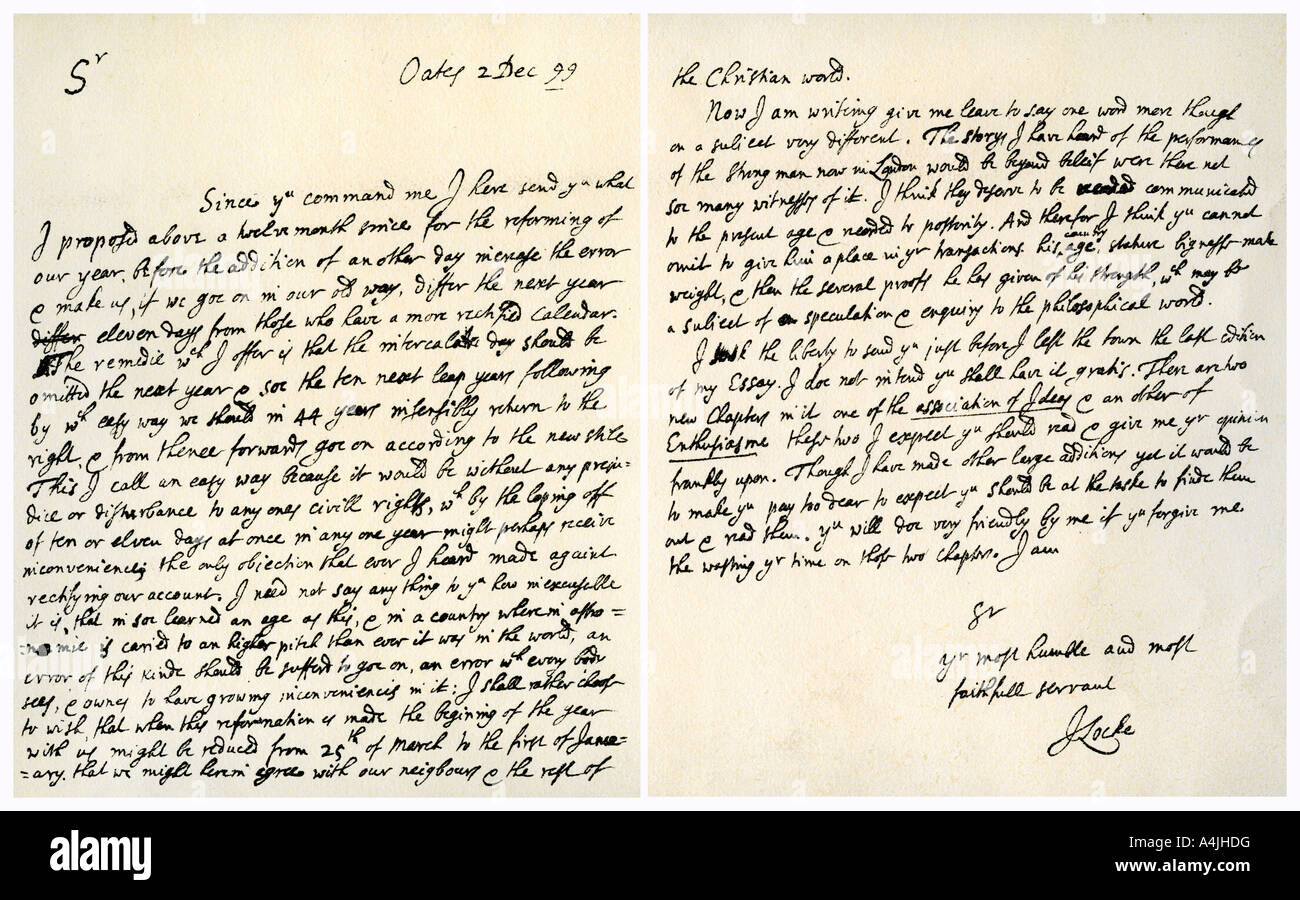 Sr
Oates 2 Dec 99
Since yu command me I here send yu what
I proposed above a twelve month since for the reforming of
our year, before the addition of an other day increase the error
& make us, if we goe on in our old way, differ the next year
differ eleven days from those who have a more rectified Calendar.
The remedie wch I offer is that the intercalate day should be
omitted the next year & soe the ten next leap years following
by wch easy way we should in 44 years insensibly return to the
right, & from thence forwards goe on according to the new stile
This I call an easy way because it would be without any preju-
dice or disturbance to any ones civill rights, wch by the loping off
of ten or eleven days at once in any one year might perhaps receive
inconvenience, the only objection that ever I heard made against
rectifying our account. I need not say any thing to yu how inexcusable
it is, that in soe learned an age as this, & in a country wherein astro=
=nomie is caried to an higher pitch than ever it was in the world, an
error of this kinde should be sufferd to goe on, an error wch every body
sees, & ownes to have growing inconveniencies in it: I shall rather choose
to wish, that when this reformation is made the begining of the year
with us might be reduced from 25th of March to the first of Janu=
=ary. that we might herein agree with our neighbours & the rest of
the Christian world.
Now I am writing give me leave to say one word more though
on a subiect very different. The storys I have heard of the performances
of the strong man now in London would be beyond beleif were there not
soe many witnesses of it. I think they deserve to be communicated
to the present age & recorded to posterity. And therefor I think yu cannot
omit to give him a place in yr transactions his country age, stature bigness make
weight, & then the several proofs he has given of his strength, wch may be
a subiect of speculation & enquiry to the philosophical world.
I took the liberty to send yu just before I left the town the last edition
of my Essay. I doe not intend yu shall have it gratis. There are two
new Chapters in it one of the association of Ideas & an other of
Enthusiasme these two I expect yu should read & give me yr opinion
frankly upon. Though I have made other large additions yet it would be
to make yu pay too dear to expect yu should be at the taske to finde them
out & read them. yu will doe very friendly by me if yu forgive me
the wasting yr time on those two chapters. I am
Sr
yr most humble and most
faithfull servant
J Locke
alamy
Image ID: A4JHDG
www.alamy.com